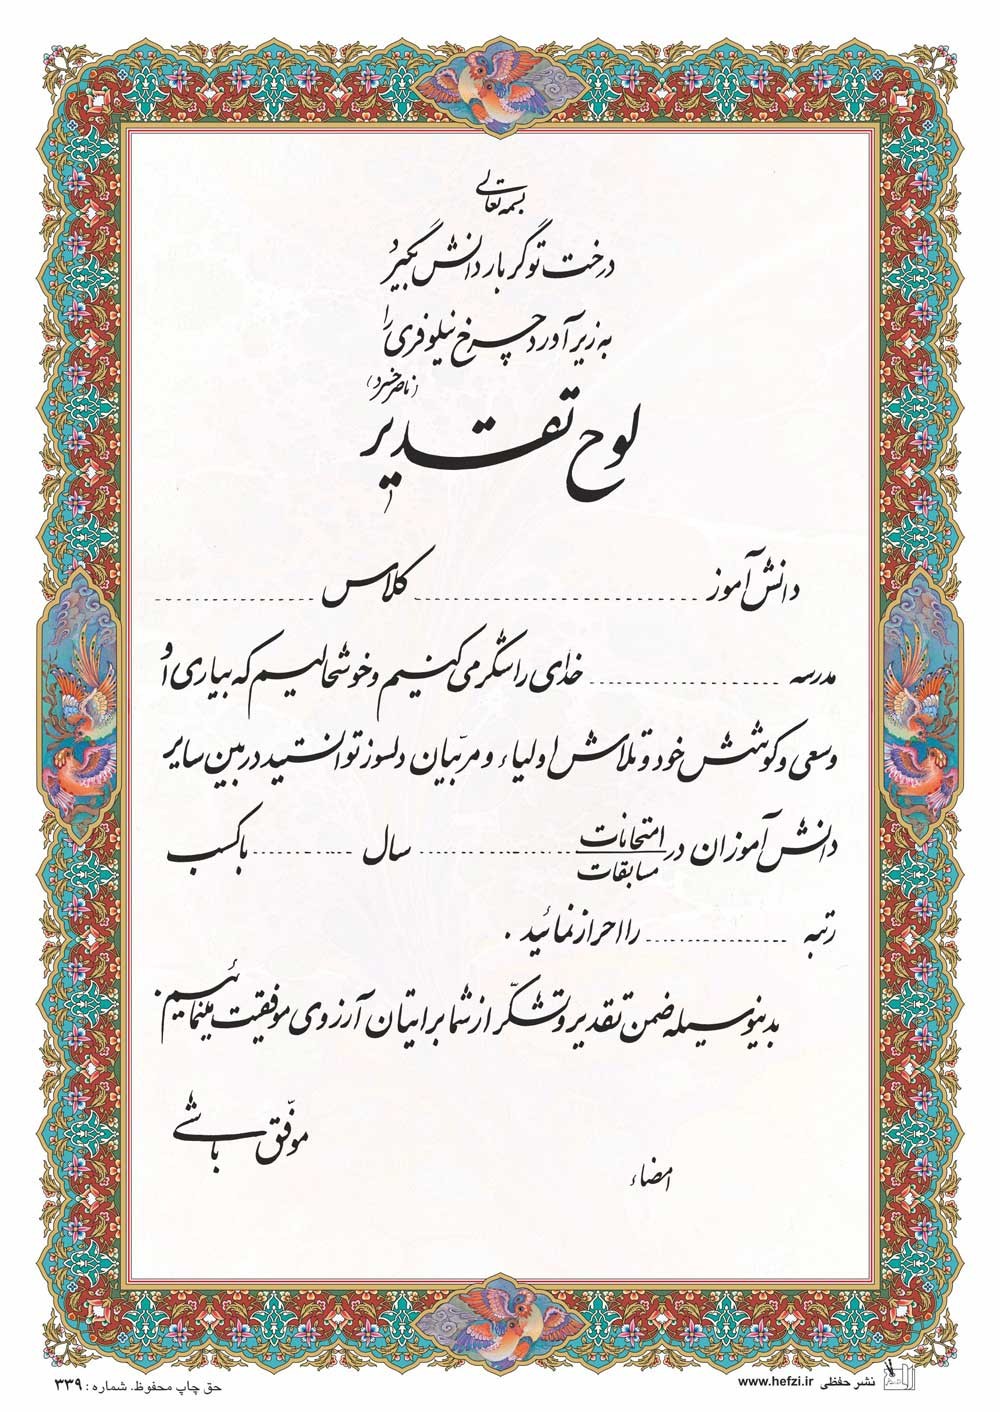 بسمه تعالی
درخت تو گر بار دانش بگیرد
به زیر آورد چرخ نیلوفری را
(ناصر خسرو)
لوح تقدیر
دانش آموز ........................ کلاس ..................
مدرسه .................... خدای را شکر می کنیم و خوشحالیم که بیاری او
و سعی و کوشش خود و تلاش اولیاء و مربّیان دلسوز توانستید در بین سایر
دانش آموزان در امتحانات .................... سال ............ با کسب
مسابقات
رتبه .................. را احراز نمائید .
بدینوسیله ضمن تقدیر و تشکّر از شما برایتان آرزوی موفقیت مینمائیم.
موفّق باشی
امضاء
نشر حفظی www.hefzi.ir
حق چاپ محفوظ. شماره : ۳۳۹